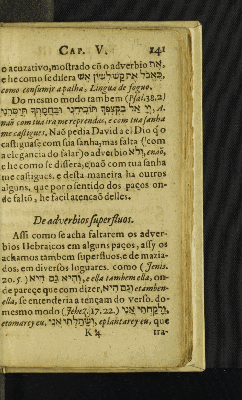 CAP. V. 141
o acuzativo, mostrado cõ o adverbio את,
e he como se disera כאכל את קש לשון אש,
como consumir a palha, Lingua de fogo.
Do mesmo modo tambem (Psal. 38. 2)
יי אל בקצפך תוכיחני ובחמתך תיסרני, A.
naõ com tua ira me reprendas, e com tua sanha
me castigues. Naõ pedia David a el Dio q̃ o
castigase com sua sanha, mas falta (com
a elegancia do falar) o adverbio ולא, enaõ,
e he como se disera, e naõ com tua sanha
me castigues. e desta maneira ha outros
alguns, que por o sentido dos paços on-
de faltõ, he facil atencaõ delles.
De adverbios superfluos.
Assi como se acha faltarem os adver-
bios Hebraicos em alguns paços, assy os
achamos tambem superfluos, e de mazia-
dos, em diversos luguares. como (Jenis.
20. 5.) והיא גם היא, e ella tambem ella, on-
de pareçe que com dizer, וגם היא, e tamben-
ella, se entenderia a tençam do Verso. do-
mesmo modo (Jehez. 17. 22.) ולקחתי אני,
e tomarey eu, ושתלתי אני, e plantarey eu, que
K 4 tra-